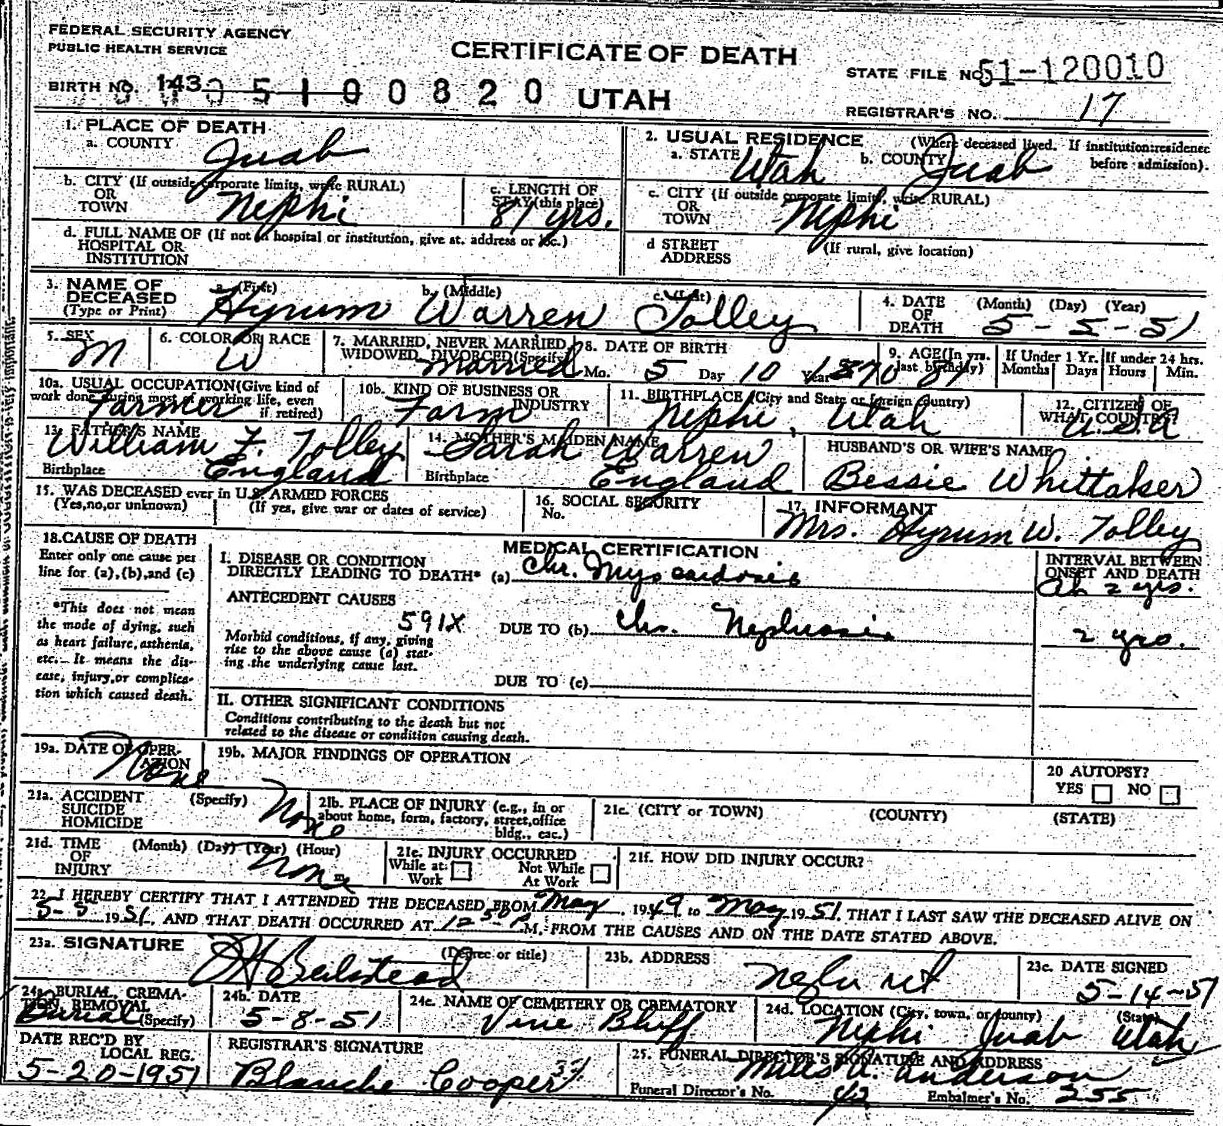 FEDERAL SECURITY AGENCY
PUBLIC HEALTH SERVICE
CERTIFICATE OF DEATH
STATE FILE NO. 51-120010
BIRTH NO. 143 05100820 UTAH
REGISTRAR'S NO. 17
1. PLACE OF DEATH
a. COUNTY Juab
2. USUAL RESIDENCE (Where deceased lived. If institution: residence before admission).
a. STATE Utah b. COUNTY Juab
b. CITY (If outside corporate limits, write RURAL) OR TOWN Nephi
c. LENGTH OF STAY (this place) 81 yrs.
c. CITY (If outside corporate limits, write RURAL) OR TOWN Nephi
d. FULL NAME OF (If not in hospital or institution, give st. address or loc.) HOSPITAL OR INSTITUTION
d STREET ADDRESS (If rural, give location)
3. NAME OF DECEASED (Type or Print) a. (First) Hyrum b. (Middle) Warren c. (Last) Tolley
4. DATE OF DEATH (Month) (Day) (Year) 5-5-51
5. SEX M
6. COLOR OR RACE W
7. MARRIED, NEVER MARRIED, WIDOWED, DIVORCED (Specify) Married
8. DATE OF BIRTH Mo. 5 Day 10 Year 1870
9. AGE (In yrs. last birthday) 81
If Under 1 Yr. Months Days
If under 24 hrs. Hours Min.
10a. USUAL OCCUPATION (Give kind of work done during most of working life, even if retired) Farmer
10b. KIND OF BUSINESS OR INDUSTRY Farm
11. BIRTHPLACE (City and State or foreign country) Nephi, Utah
12. CITIZEN OF WHAT COUNTRY? U.S.A
13. FATHER'S NAME William F. Tolley
Birthplace England
14. MOTHER'S MAIDEN NAME Sarah Warren
Birthplace England
HUSBAND'S OR WIFE'S NAME
Bessie Whittaker
15. WAS DECEASED ever in U.S. ARMED FORCES
(Yes, no, or unknown) (If yes, give war or dates of service)
16. SOCIAL SECURITY No.
17. INFORMANT
Mrs. Hyrum W. Tolley
18. CAUSE OF DEATH
Enter only one cause per line for (a), (b), and (c)
*This does not mean the mode of dying, such as heart failure, asthenia, etc. It means the disease, injury, or complication which caused death.
MEDICAL CERTIFICATION
I. DISEASE OR CONDITION DIRECTLY LEADING TO DEATH* (a) Chr. Myocardosis
INTERVAL BETWEEN ONSET AND DEATH
Ab 2 yrs.
ANTECEDENT CAUSES
591X
Morbid conditions, if any, giving rise to the above cause (a) stating the underlying cause last.
DUE TO (b) Chr. Nephrosis 2 yrs.
DUE TO (c)
II. OTHER SIGNIFICANT CONDITIONS
Conditions contributing to the death but not related to the disease or condition causing death.
19a. DATE OF OPERATION None
19b. MAJOR FINDINGS OF OPERATION
20 AUTOPSY?
YES NO
21a. ACCIDENT SUICIDE HOMICIDE (Specify) None
21b. PLACE OF INJURY (e.g., in or about home, form, factory, street, office bldg., eac.)
21c. (CITY or TOWN) (COUNTY) (STATE)
21d. TIME OF INJURY (Month) (Day) (Year) (Hour) m. None
21e. INJURY OCCURRED
While at Work Not While At Work
21f. HOW DID INJURY OCCUR?
22. I HEREBY CERTIFY THAT I ATTENDED THE DECEASED FROM May, 1949 to May 1951 THAT I LAST SAW THE DECEASED ALIVE ON
5-5 1951, AND THAT DEATH OCCURRED AT 12-50 P M. FROM THE CAUSES AND ON THE DATE STATED ABOVE.
23a. SIGNATURE (Degree or title)
23b. ADDRESS
23c. DATE SIGNED
5-14-51
24a. BURIAL, CREMATION, REMOVAL (Specify) Burial
24b. DATE
5-8-51
24c. NAME OF CEMETERY OR CREMATORY
Vine Bluff
24d. LOCATION (City, town, or county) (State)
Nephi Juab Utah
DATE REC'D BY LOCAL REG.
5-20-1951
REGISTRAR'S SIGNATURE
Blanche Cooper
25. FUNERAL DIRECTOR'S SIGNATURE AND ADDRESS
Miles A. Anderson
Funeral Director's No. 42 Embalmer's No. 255